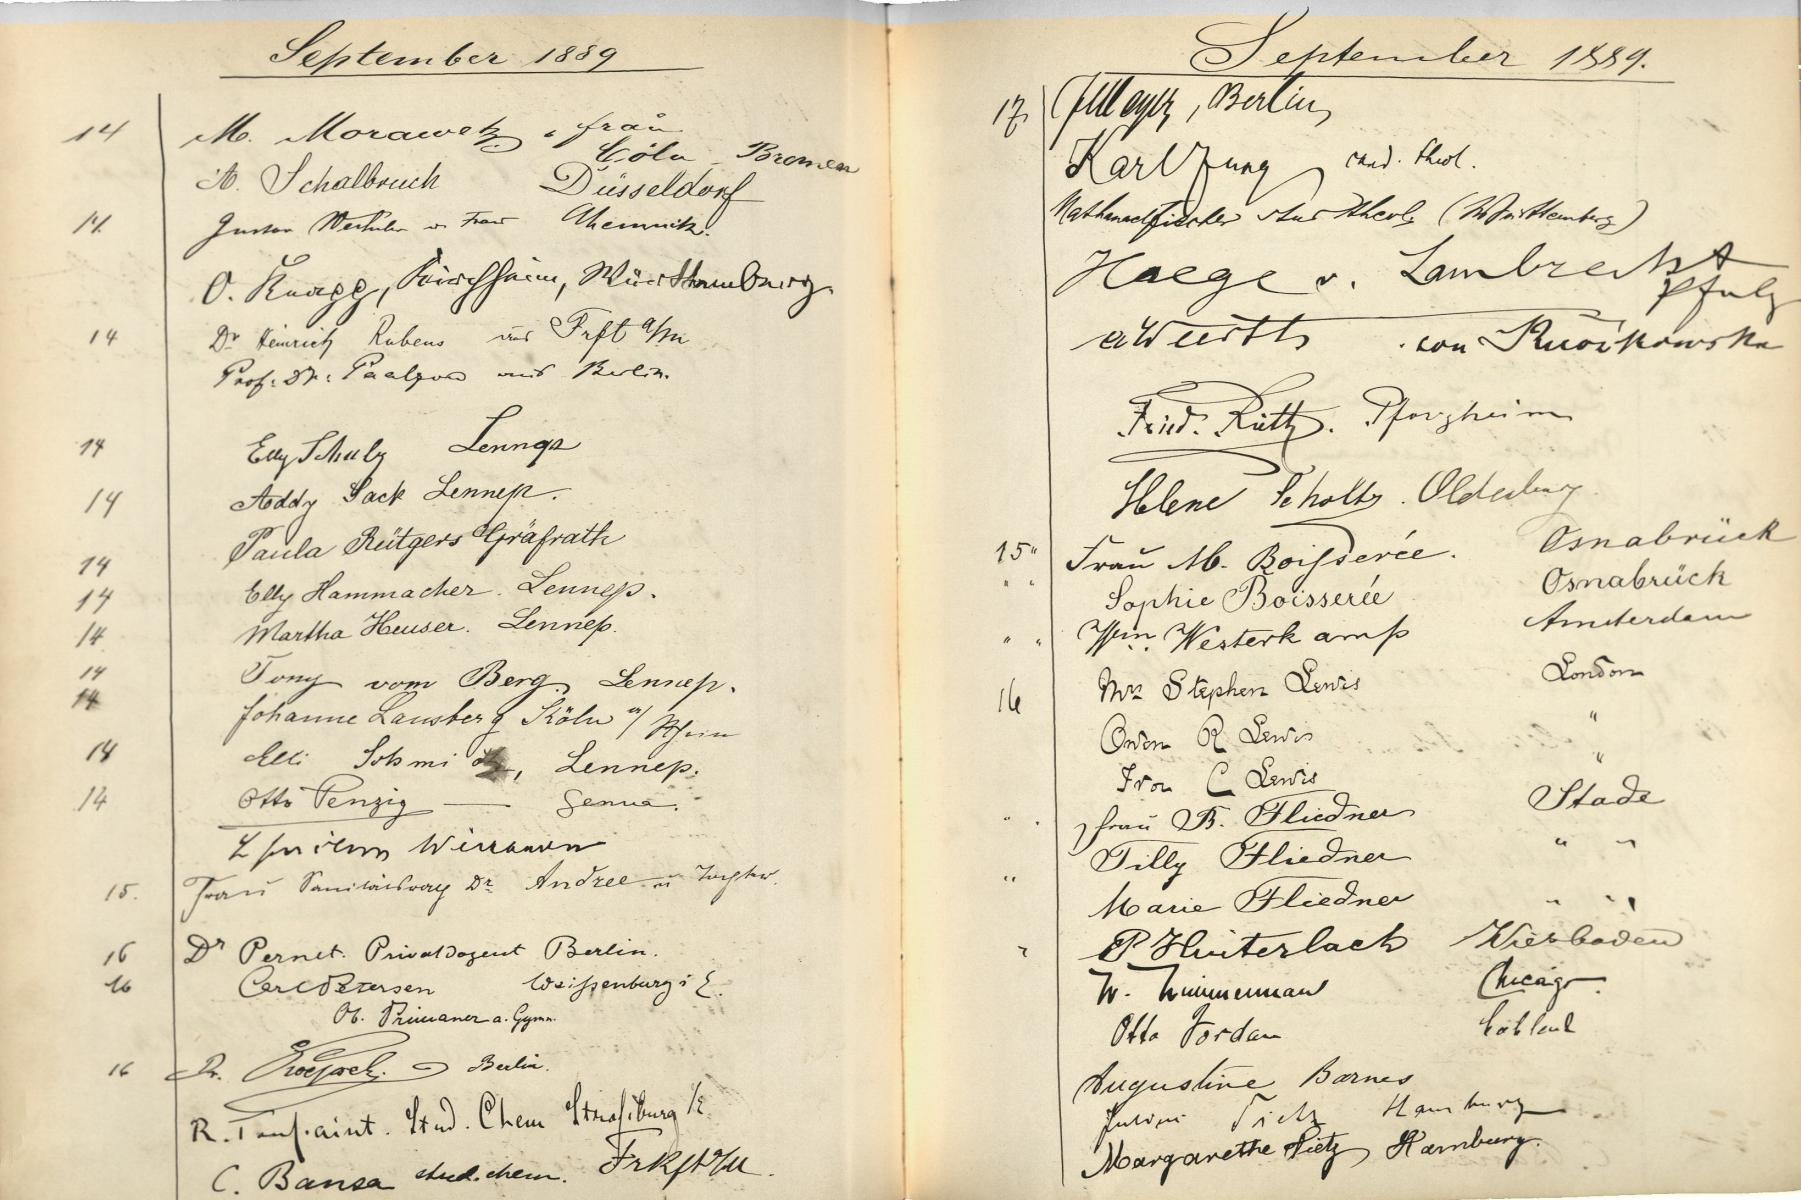 September 1889
14 M. Morawetz, frau
Cöln - Bremen
A. Schalbruch Düsseldorf
14 Gustav u. Frau Chemnitz.
O. Knapp, Kirchheim, Württemberg.
14 Dr Heinrich Rubens aus Frkft a/M
Prof. Dr. Paalzow aus Berlin.
14 Elly Schulz Lennep
14 Addy Sack Lennep.
Paula Rütgers Gräfrath
14
14 Elly Hammacher. Lennep.
14 Martha Heuser. Lennep.
14 Tony vom Berg. Lennep.
14 Johanne Lausberg Köln a/Rhein
14 Elli Schmidt, Lennep.
14 Otto Penzig — Genua.
15. Frau Sanitätsrat Dr Andree u Tochter.
16 Dr Pernet. Privatdozent Berlin.
16 Carl Petersen Weißenburg i E.
Ob. Primaner a. Gymn.
16 Dr. Berlin.
R. Toussaint. Stud. Chem Straßburg i/E
C. Bansa stud. chem. Frkft a/M.
September 1889.
17 Meyer, Berlin
Karl Jung cand. theol.
Nathanael Fischer stud theol. (Württemberg)
Haege v. Lambrecht
Pfalz
von
Fried. Rütz. Pforzheim
Helene Scholtz. Oldenburg
15 " Frau M. Boisserée. Osnabrück
" " Sophie Boisserée Osnabrück
" " Wm. Westerkamp Amsterdam
16 Mrs Stephen Lewis London
Owen R Lewis "
C Lewis "
" Frau B. Fliedner Stade
" Tilly Fliedner " "
Marie Fliedner " "
" P Hinterlach Wiesbaden
W. Zimmerman Chicago.
Otto Jordan Coblenz
Augustine Barnes
Tietz Hamburg
Margarethe Tietz, Hamburg.